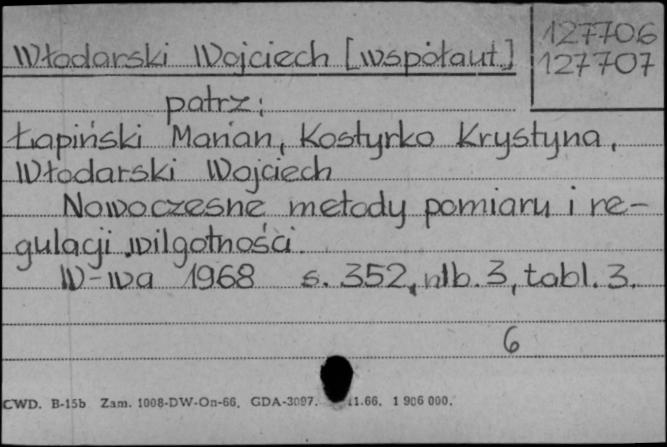 127706
Włodarski Wojciech [współaut.]
127707
patrz:
Łapiński Marian, Kostyrko Krystyna,
Włodarski Wojciech
Nowoczesne metody pomiaru i re-
gulacji wilgotności.
W-wa 1968 s. 352, nlb. 3, tabl. 3.
6
CWD. B-15b Zam. 1008-DW-On-66. GDA-3097. 11.66. 1 906 000.